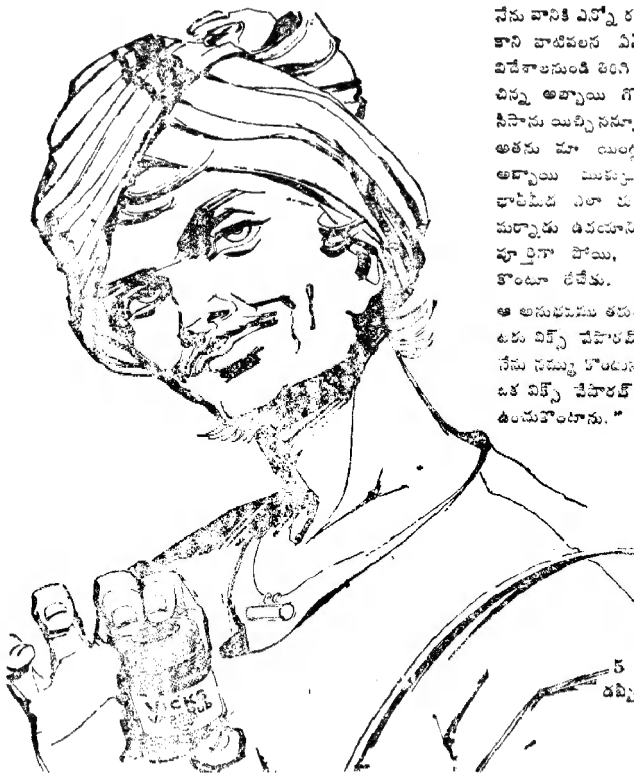 నేను వానికి ఎన్నో
కాని వాటివలన
విదేశాలనుండి తిరిగి
చిన్న అబ్బాయి
సీసాను యిచ్చినన్నూ
అతను మా
అబ్బాయి
ఛాతీమీద ఎలా
మర్నాడు ఉదయాని
పూర్తిగా పోయి,
కొంటూ లేచేడు.
ఆ అనుభవము
టకు విక్స్ వేపొరబ్
నేను నమ్ము కొంటున
ఒక విక్స్ వేపొరబ్
ఉంచుకొంటాను."
VICKS
5